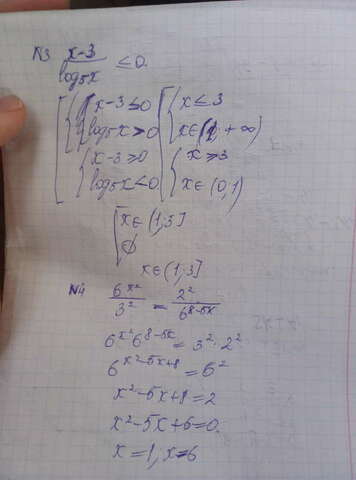 №3 (x-3)/(log₅x) ≤0.
[ { x-3≤0 [ { x≤3
log₅x>0 x∈(1,+∞)
{ x-3≥0 { x≥3
log₅x<0 x∈(0,1)
[ x∈(1;3]
∅
x∈(1;3]
№4 6^(x²)/3² = 2²/6^(8-5x)
6^(x²)6^(8-5x) = 3²·2²
6^(x²-5x+8) = 6²
x²-5x+8=2
x²-5x+6=0.
x=1, x=6